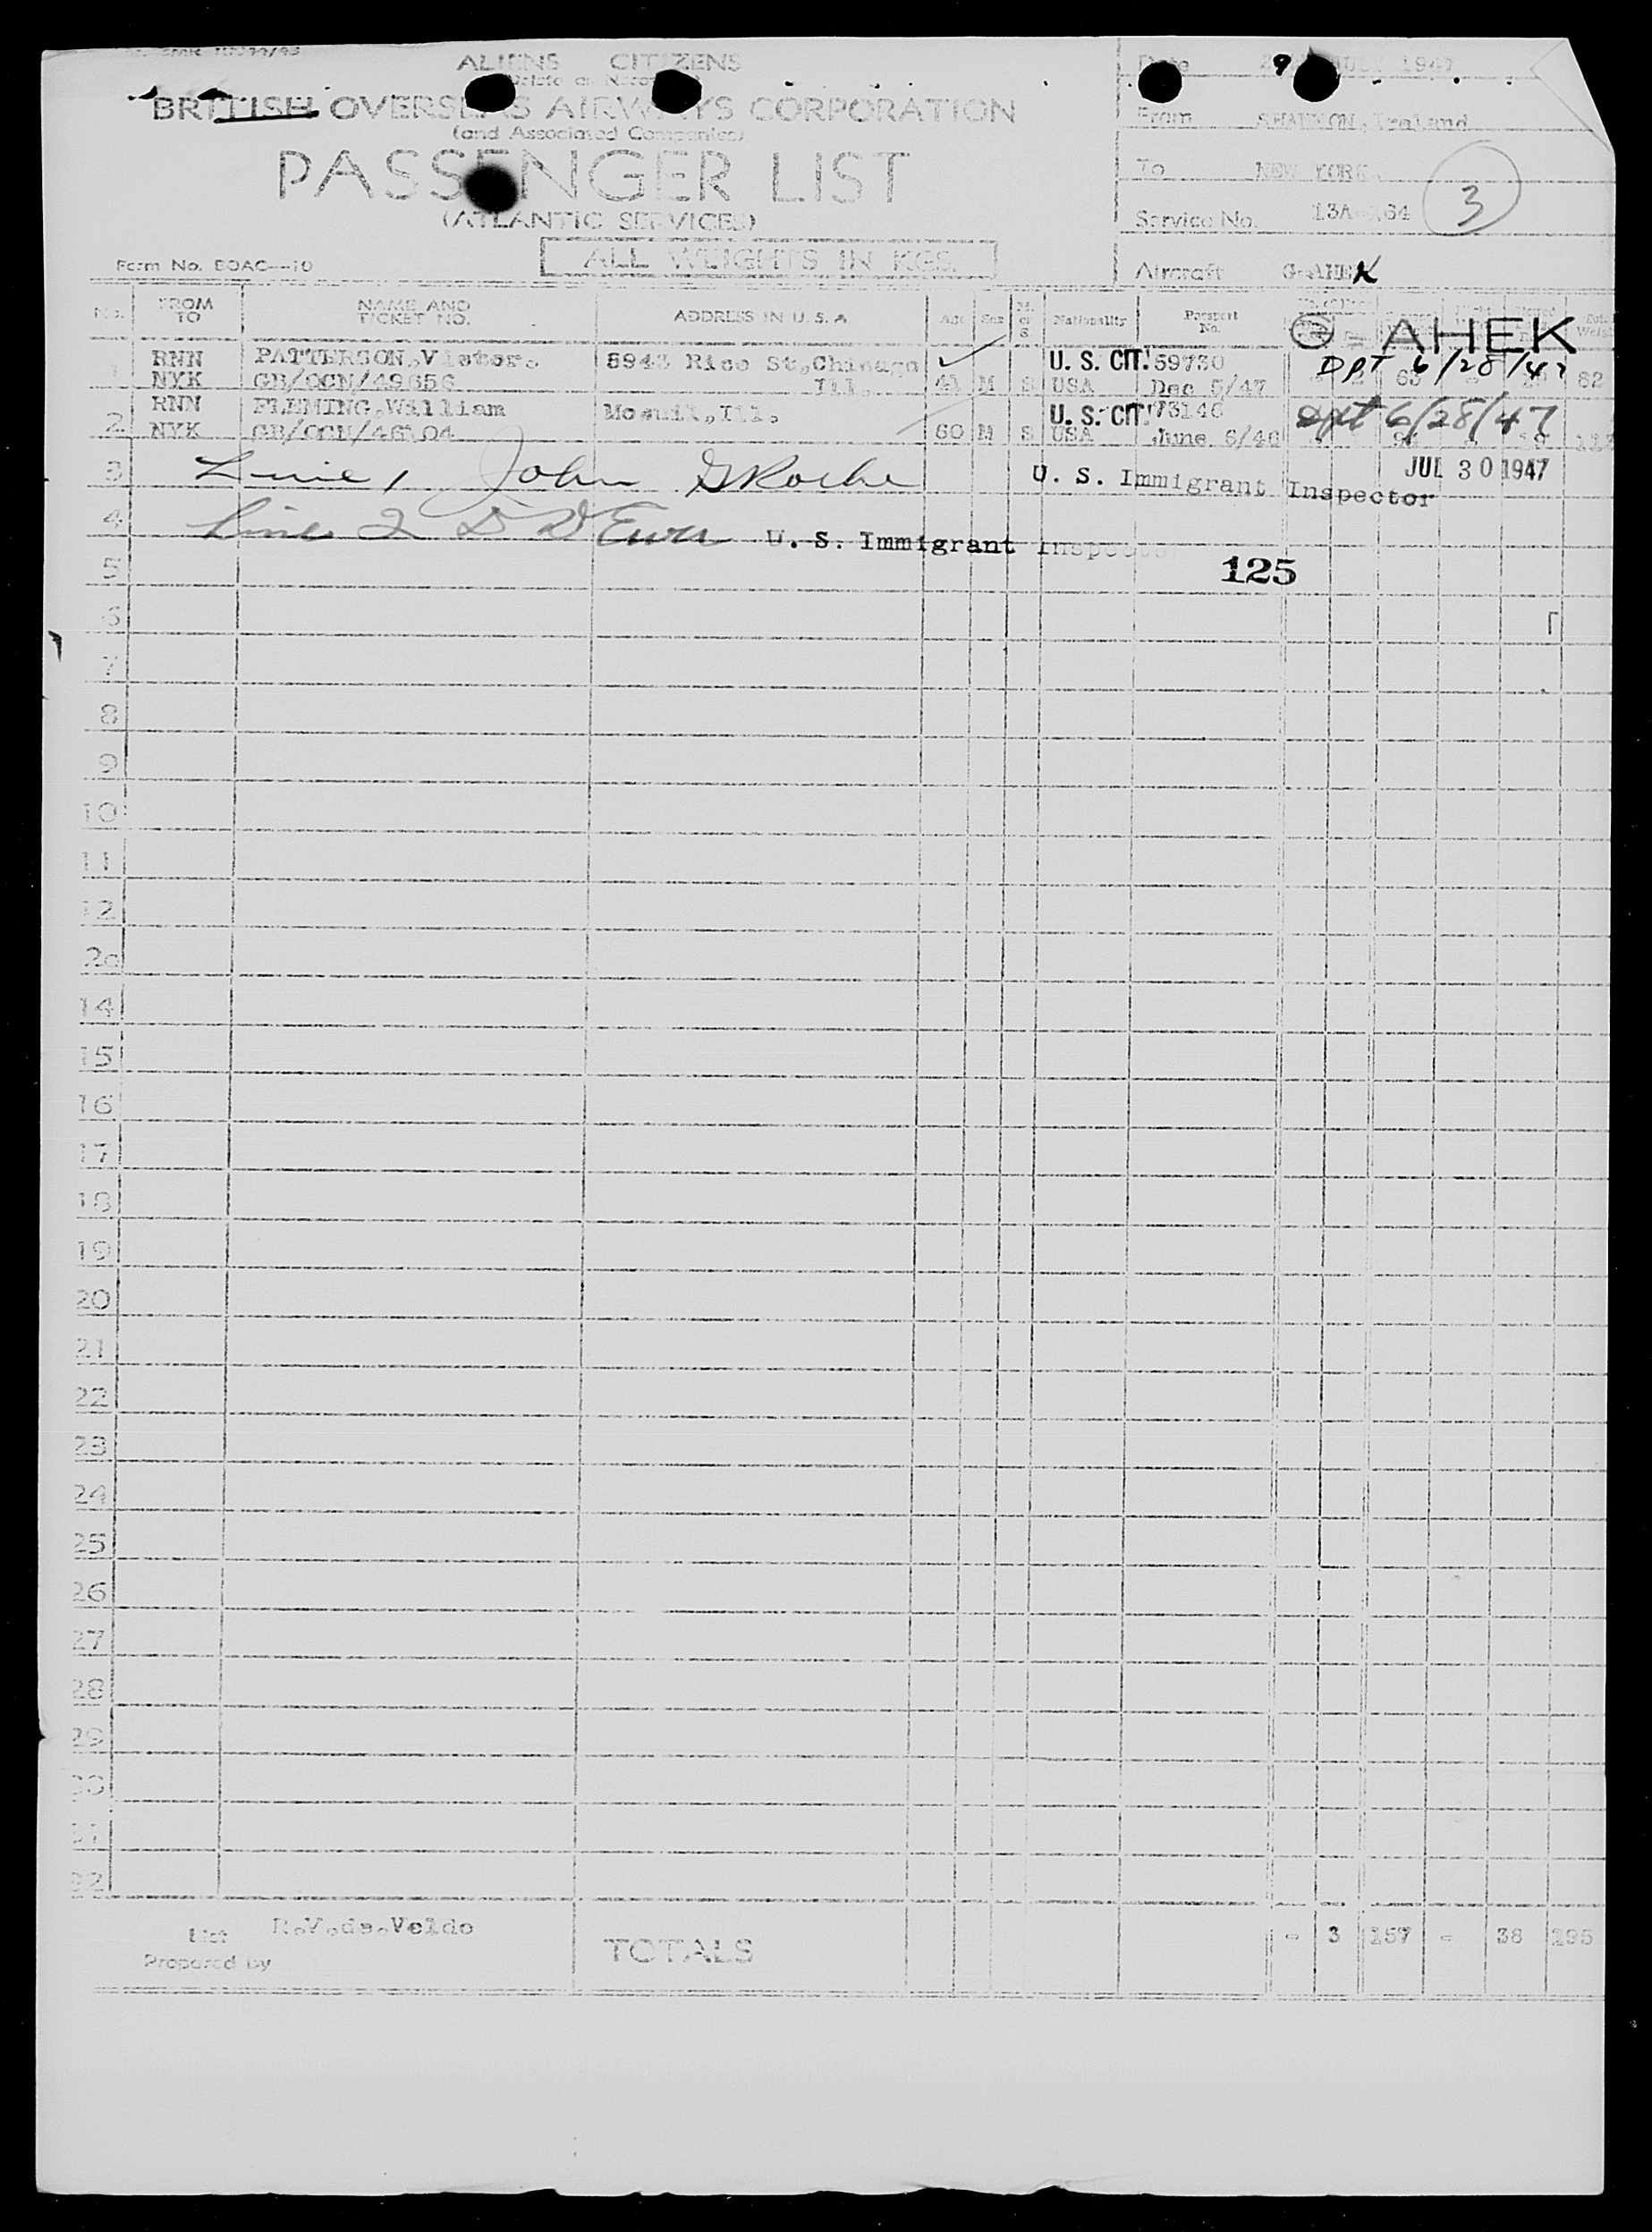 ALIENS CITIZENS
BRITISH OVERSEAS AIRWAYS CORPORATION
(and Associated Companies)
PASSENGER LIST
(ATLANTIC SERVICES)
ALL WEIGHTS IN KGS.
Form No. BOAC—10
Date 29 JULY 1947
From SHANNON, Ireland
To NEW YORK
Service No. 13A 64
3
Aircraft G-AHEK
AHEK
No. FROM TO NAME AND TICKET NO. ADDRESS IN U. S. A. Age Sex M. or S. Nationality Passport No.
1 RNN PATTERSON, Victor. 5943 Rice St, Chicago U. S. CIT. 59730 DPT 6/28/47
NYK GB/OCN/49656 Ill. 41 M S USA Dec 5/47 63 62
2 RNN FLEMING, William U. S. CIT. 73146 dpt 6/28/47
NYK 60 M S USA June 6/48
3 Line 1 John G Roche U. S. Immigrant Inspector JUL 30 1947
4 Line 2 U. S. Immigrant Inspector
5 125
6
7
8
9
10
11
12
14
15
16
17
18
19
20
21
22
23
24
25
26
27
28
29
30
31
32
List Prepared by R.V.de.Velde
TOTALS - 3 157 - 38 195